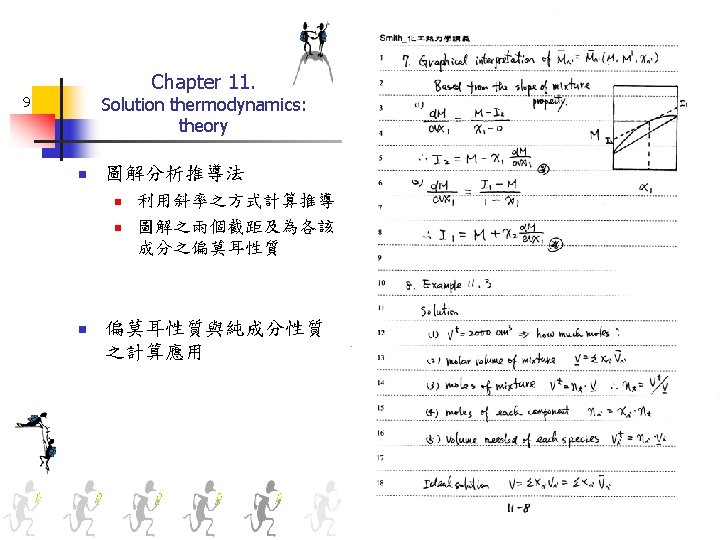 9
Chapter 11.
Solution thermodynamics:
theory
圖解分析推導法
利用斜率之方式計算推導
圖解之兩個截距及為各該
成分之偏莫耳性質
偏莫耳性質與純成分性質
之計算應用
Smith_化工熱力學講義
1 7. Graphical interpretation of M̄ᵢ = M̄ᵢ(M, M', xᵢ)
2 Based from the slope of mixture
property.
3 (a) dM/dx₁ = (M - I₂)/(x₁ - 0)
4
5 ∴ I₂ = M - x₁ dM/dx₁
6 (b) dM/dx₁ = (I₁ - M)/(1 - x₁)
7
8 ∴ I₁ = M + x₂ dM/dx₁
9
M
I₁
I₂
x₁
10 8. Example 11.3
11 Solution
12 (1) Vᵗ = 2000 cm³ ⇒ how much moles?
13 (2) molar volume of mixture V = Σxᵢ V̄ᵢ
14 (3) moles of mixture Vᵗ = nₜ · V ∴ nₜ = Vᵗ/V
15 (4) moles of each component nᵢ = xᵢ · nₜ
16 (5) Volume needed of each species Vᵢᵗ = nᵢ · Vᵢ
17
18 Ideal solution V = Σxᵢ Vᵢ = Σxᵢ V̄ᵢ
11-8